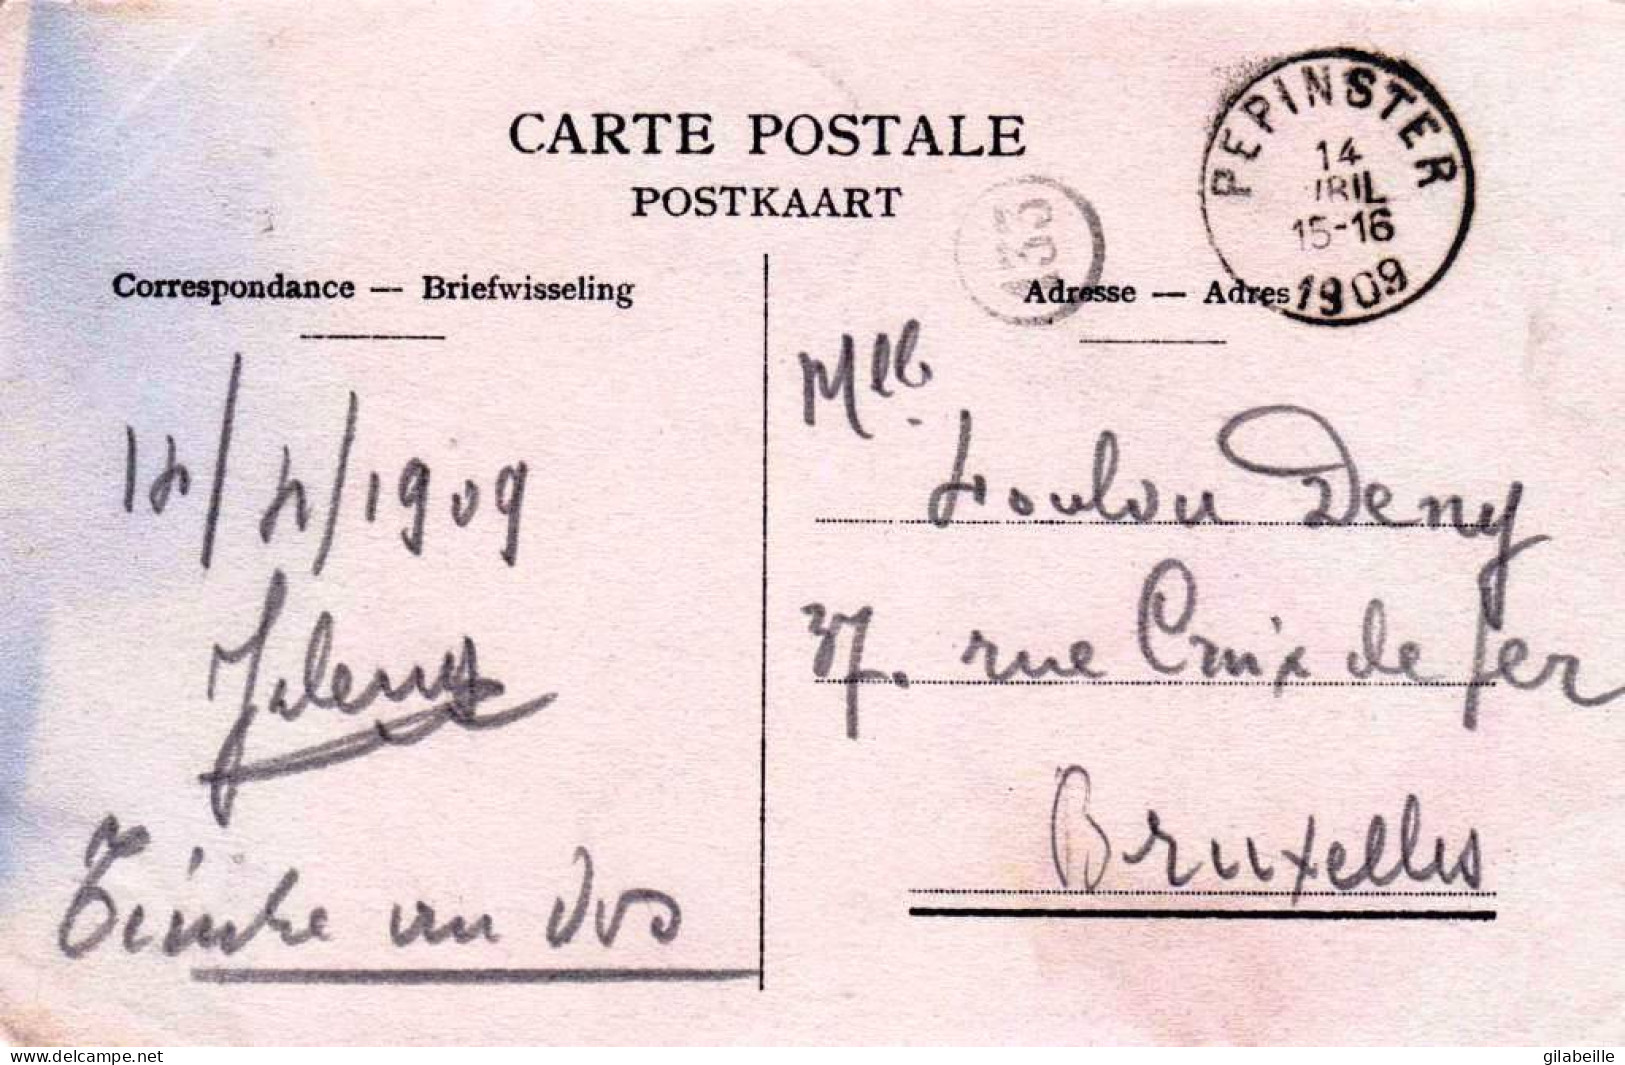 CARTE POSTALE
POSTKAART
PEPINSTER
14
RIL
15-16
1909
Correspondance — Briefwisseling
Adresse — Adres
14/4/1909
Timbre au dos
Mlle
Loulou Deny
37. rue Croix de fer
Bruxelles
www.delcampe.net
gilabeille